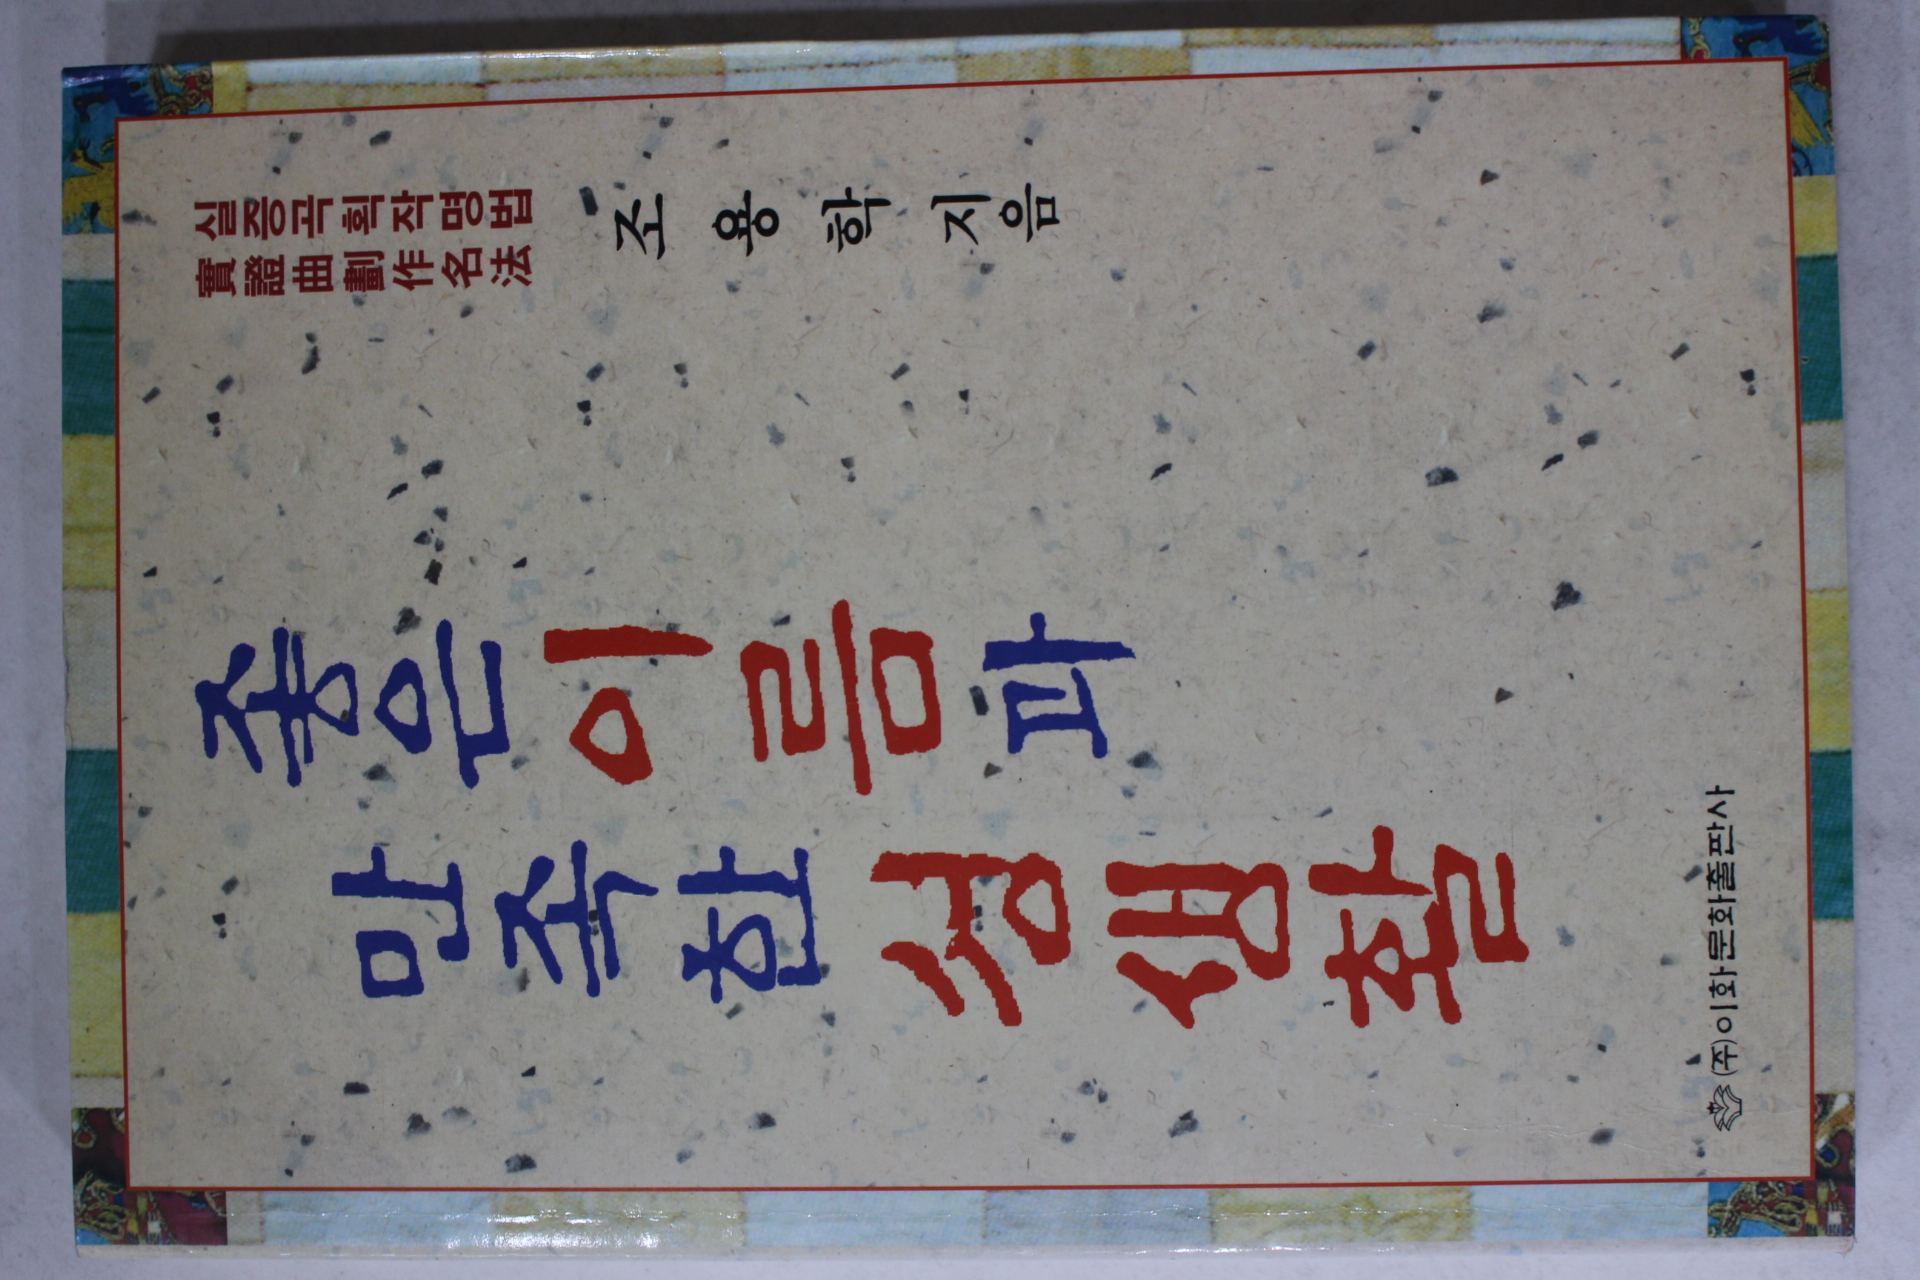 실증곡획작명법
實證曲劃作名法
조용학 지음
좋은 이름과
만족한 성생활
(주)이화문화출판사